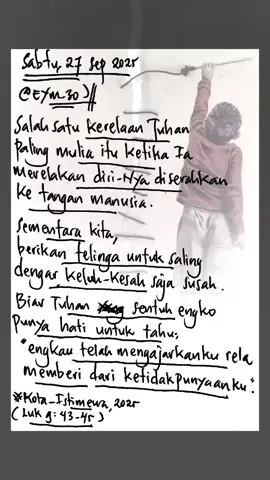 Sabtu, 27 Sep 2025
@Eym-30)//
Salah satu kerelaan Tuhan
paling mulia itu ketika Ia
merelakan diri-Nya diserahkan
ke tangan manusia.
Sementara kita,
berikan telinga untuk saling
dengar keluh-kesah saja susah.
Biar Tuhan sentuh engko
punya hati untuk tahu;
"engkau telah mengajarkanku rela
memberi dari ketidakpunyaanku".
*Kota-Istimewa, 2025
(Luk 9:43-45)